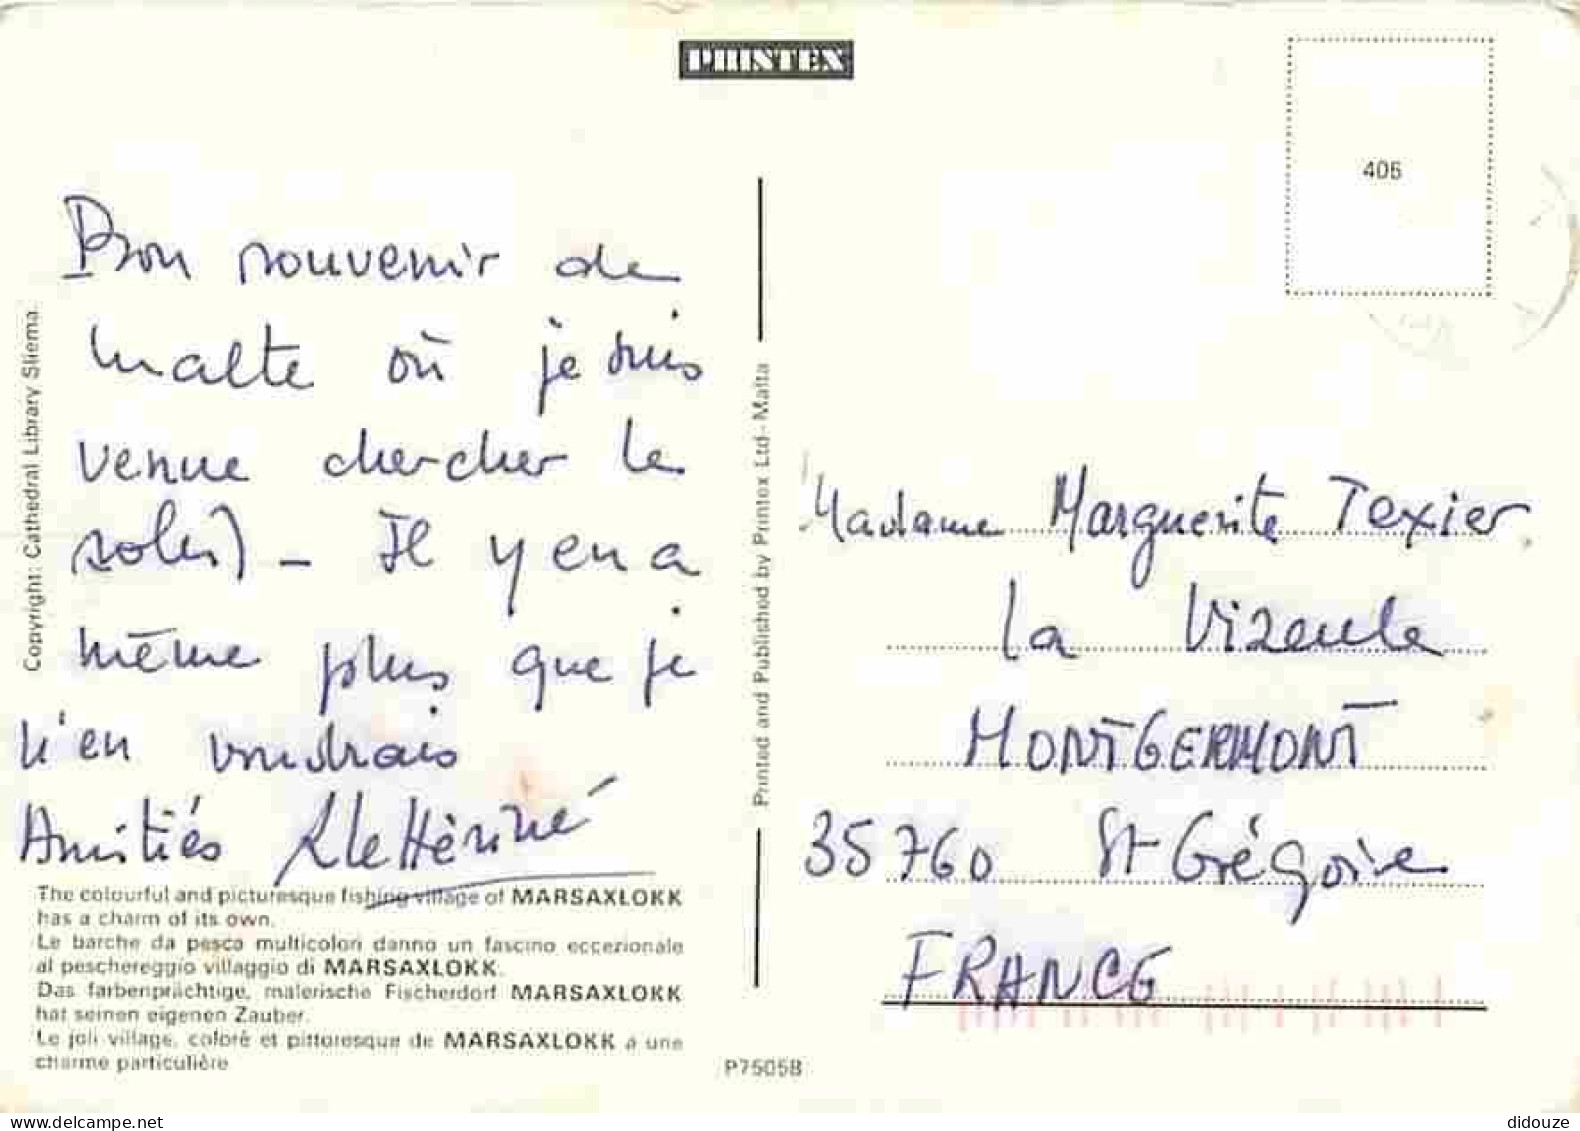 PRINTEX
405
Bon souvenir de
Malte où je suis
venue chercher le
soleil - Il y en a
même plus que je
n'en voudrais
Amitiés
Madame Marguerite Texier
La Vizeule
MONTGERMONT
35760 St Grégoire
FRANCE
Copyright: Cathedral Library Sliema.
Printed and Published by Printex Ltd - Malta
The colourful and picturesque fishing village of MARSAXLOKK
has a charm of its own.
Le barche da pesca multicolori danno un fascino eccezionale
al peschereggio villaggio di MARSAXLOKK.
Das farbenprächtige, malerische Fischerdorf MARSAXLOKK
hat seinen eigenen Zauber.
Le joli village, coloré et pittoresque de MARSAXLOKK a une
charme particulière
P75058
www.delcampe.net
didouze